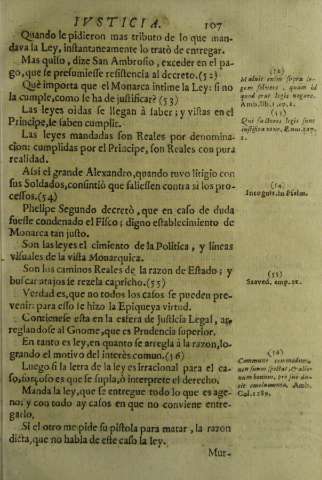 IVSTICIA. 107
Quando le pidieron mas tributo de lo que man-
dava la Ley, instantaneamente lo trató de entregar.
Mas quiso, dize San Ambrosio, exceder en el pa-
go, que se presumiesse resistencia al decreto. (52)
Què importa que el Monarca intime la Ley: si no
la cumple, como le ha de justificar? (53)
Las leyes oidas se llegan à saber; y vistas en el
Principe, se saben cumplir.
Las leyes mandadas son Reales por denomina-
cion: cumplidas por el Principe, son Reales con pura
realidad.
Assi el grande Alexandro, quando tuvo litigio con
sus Soldados, consintiò que saliessen contra si los pro-
cessos. (54)
Phelipe Segundo decretò, que en caso de duda
fuesse condenado el Fisco; digno establecimiento de
Monarca tan justo.
Son las leyes el cimiento de la Politica, y lineas
visuales de la vista Monarquica.
Son los caminos Reales de la razon de Estado; y
buscar atajos se rezela capricho. (55)
Verdad es, que no todos los casos se pueden pre-
venir: para esso se hizo la Epiqueya virtud.
Contienese esta en la esfera de Justicia Legal, ar-
reglandose al Gnome, que es Prudencia superior.
En tanto es ley, en quanto se arregla à la razon, lo-
grando el motivo del interès comun. (56)
Luego si la letra de la ley es irracional para el ca-
so, forçoso es que se supla, ò interprete el derecho.
Manda la ley, que se entregue todo lo que es age-
no: y con todo ay casos en que no conviene entre-
garlo.
Si el otro me pide su pistola para matar, la razon
dicta, que no habla de este caso la ley.
Mur-
(52)
Maluit enim supra le-
gem solvere, quam id
quod erat legis negare.
Amb. lib.
(53)
Qui factores legis sunt
iustificantur. Rom.
(54)
in Psalm.
(55)
Saaved. emp. 21.
(56)